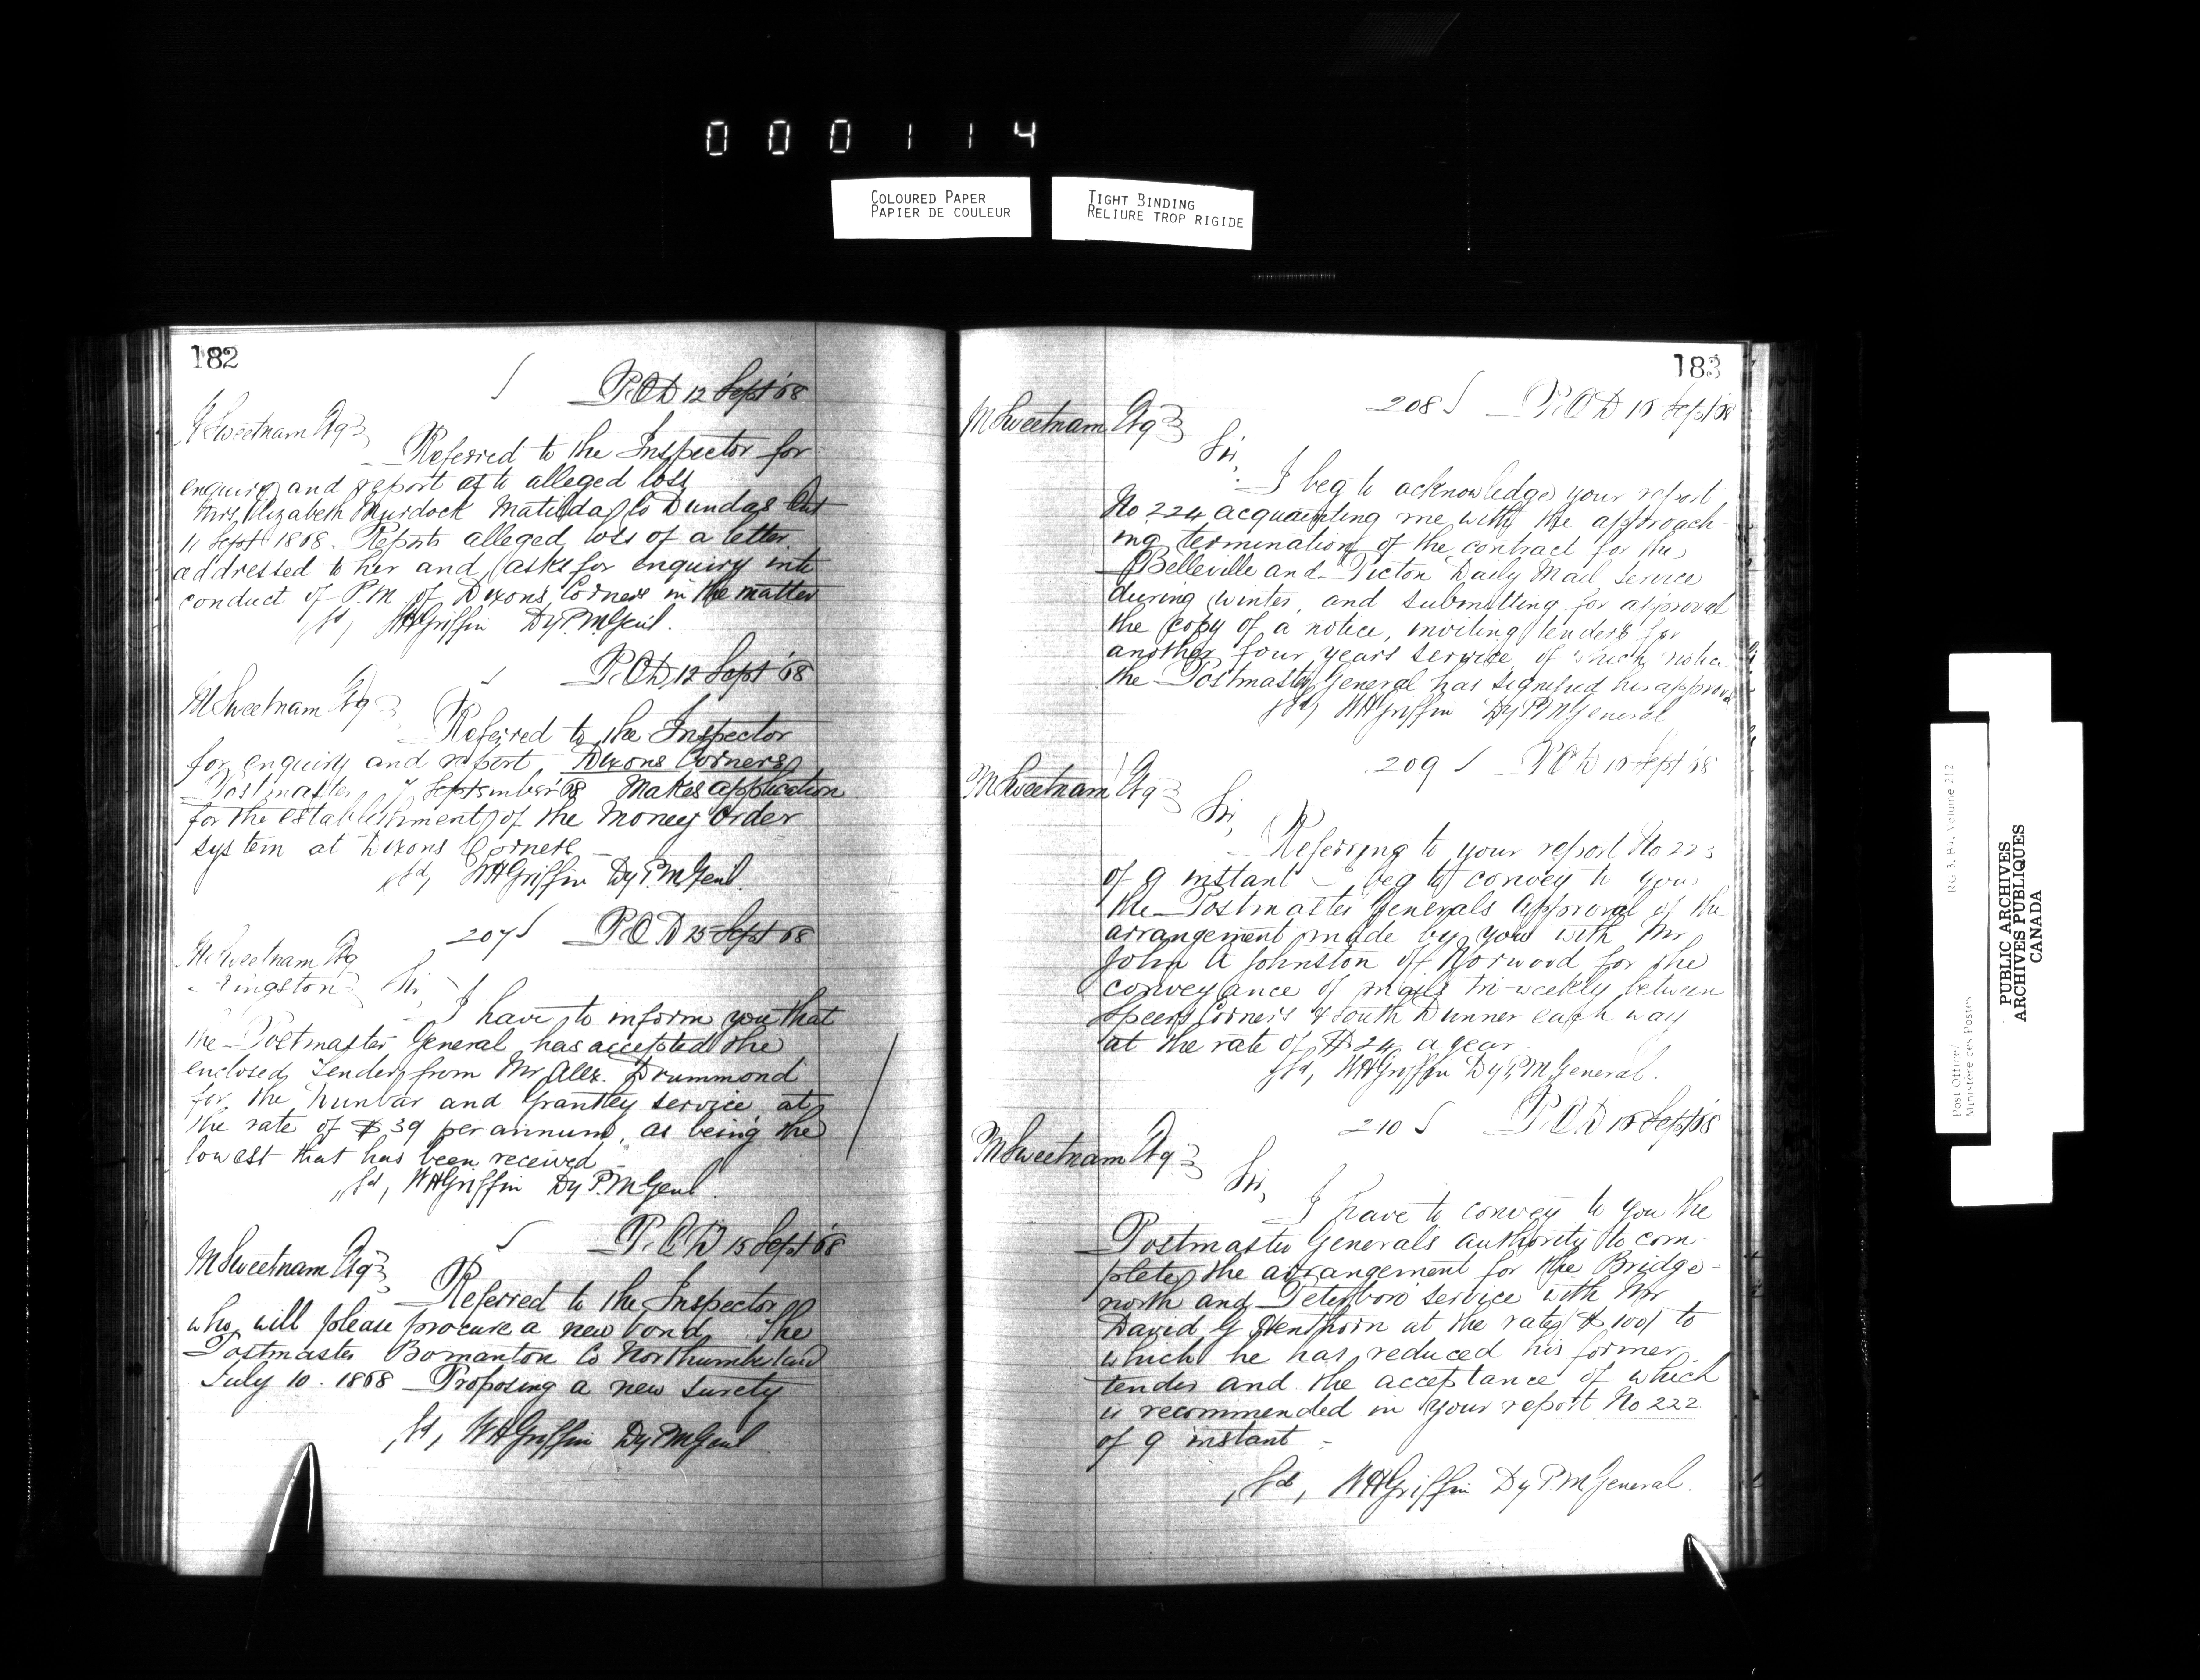 000114
COLOURED PAPER
PAPIER DE COULEUR
TIGHT BINDING
RELIURE TROP RIGIDE
182
P.O.D 12 Sept '68
M Sweetnam Esq
Referred to the Inspector for
enquiry and report as to alleged loss
Mrs Elizabeth Murdock Matilda Co Dundas Ont
11 Sept 1868 Reports alleged loss of a letter
addressed to her and asks for enquiry into
conduct of P.M of Dixons Corners in the matter
sd, WHGriffin Dy P.M.Genl.
P.O.D 12 Sept '68
M Sweetnam Esq
Referred to the Inspector
for enquiry and report. Dixons Corners
Postmaster 7 September '68 Makes application
for the establishment of the Money Order
system at Dixons Corners
sd, WHGriffin Dy P.M.Genl.
207 P.O.D 15 Sept 68
M Sweetnam Esq
Kingston Sir,
I have to inform you that
the Postmaster General has accepted the
enclosed Tender from Mr Alex. Drummond
for the Dunbar and Grantley service at
the rate of $39 per annum, as being the
lowest that has been received
sd, WHGriffin Dy P.MGenl.
P.O.D 15 Sept '68
M Sweetnam Esq
Referred to the Inspector
who will please procure a new bond. The
Postmaster Bomanton Co Northumberland
July 10. 1868 Proposing a new surety
sd, WHGriffin Dy P.M.Genl
183
208 P.O.D 15 Sept '68
M Sweetnam Esq
Sir,
I beg to acknowledge your report
No 224 acquainting me with the approach-
ing termination of the contract for the
Belleville and Picton Daily Mail Service
during winter, and submitting for approval
the copy of a notice, inviting tenders for
another four years service, of which notice
the Postmaster General has signified his approval
sd, WHGriffin Dy P.M General
209 P.O.D 15 Sept '68
M Sweetnam Esq
Sir,
Referring to your report No 223
of 9 instant I beg to convey to you
the Postmaster Generals approval of the
arrangement made by you with Mr
John A Johnston of Norwood for the
conveyance of mails tri-weekly between
Speers Corners & South Dummer each way
at the rate of $24 a year.
sd, WHGriffin Dy P.M General.
210 P.O.D 15 Sept '68
M Sweetnam Esq
Sir,
I have to convey to you the
Postmaster Generals authority to com-
plete the arrangement for the Bridge-
north and Peterboro service with Mr
David G at the rate $100 to
which he has reduced his former
tender and the acceptance of which
is recommended in your report No 222
of 9 instant -
sd, WHGriffin Dy P.M General.
Post Office/ RG 3, B4, Volume 212
Ministère des Postes
PUBLIC ARCHIVES
ARCHIVES PUBLIQUES
CANADA